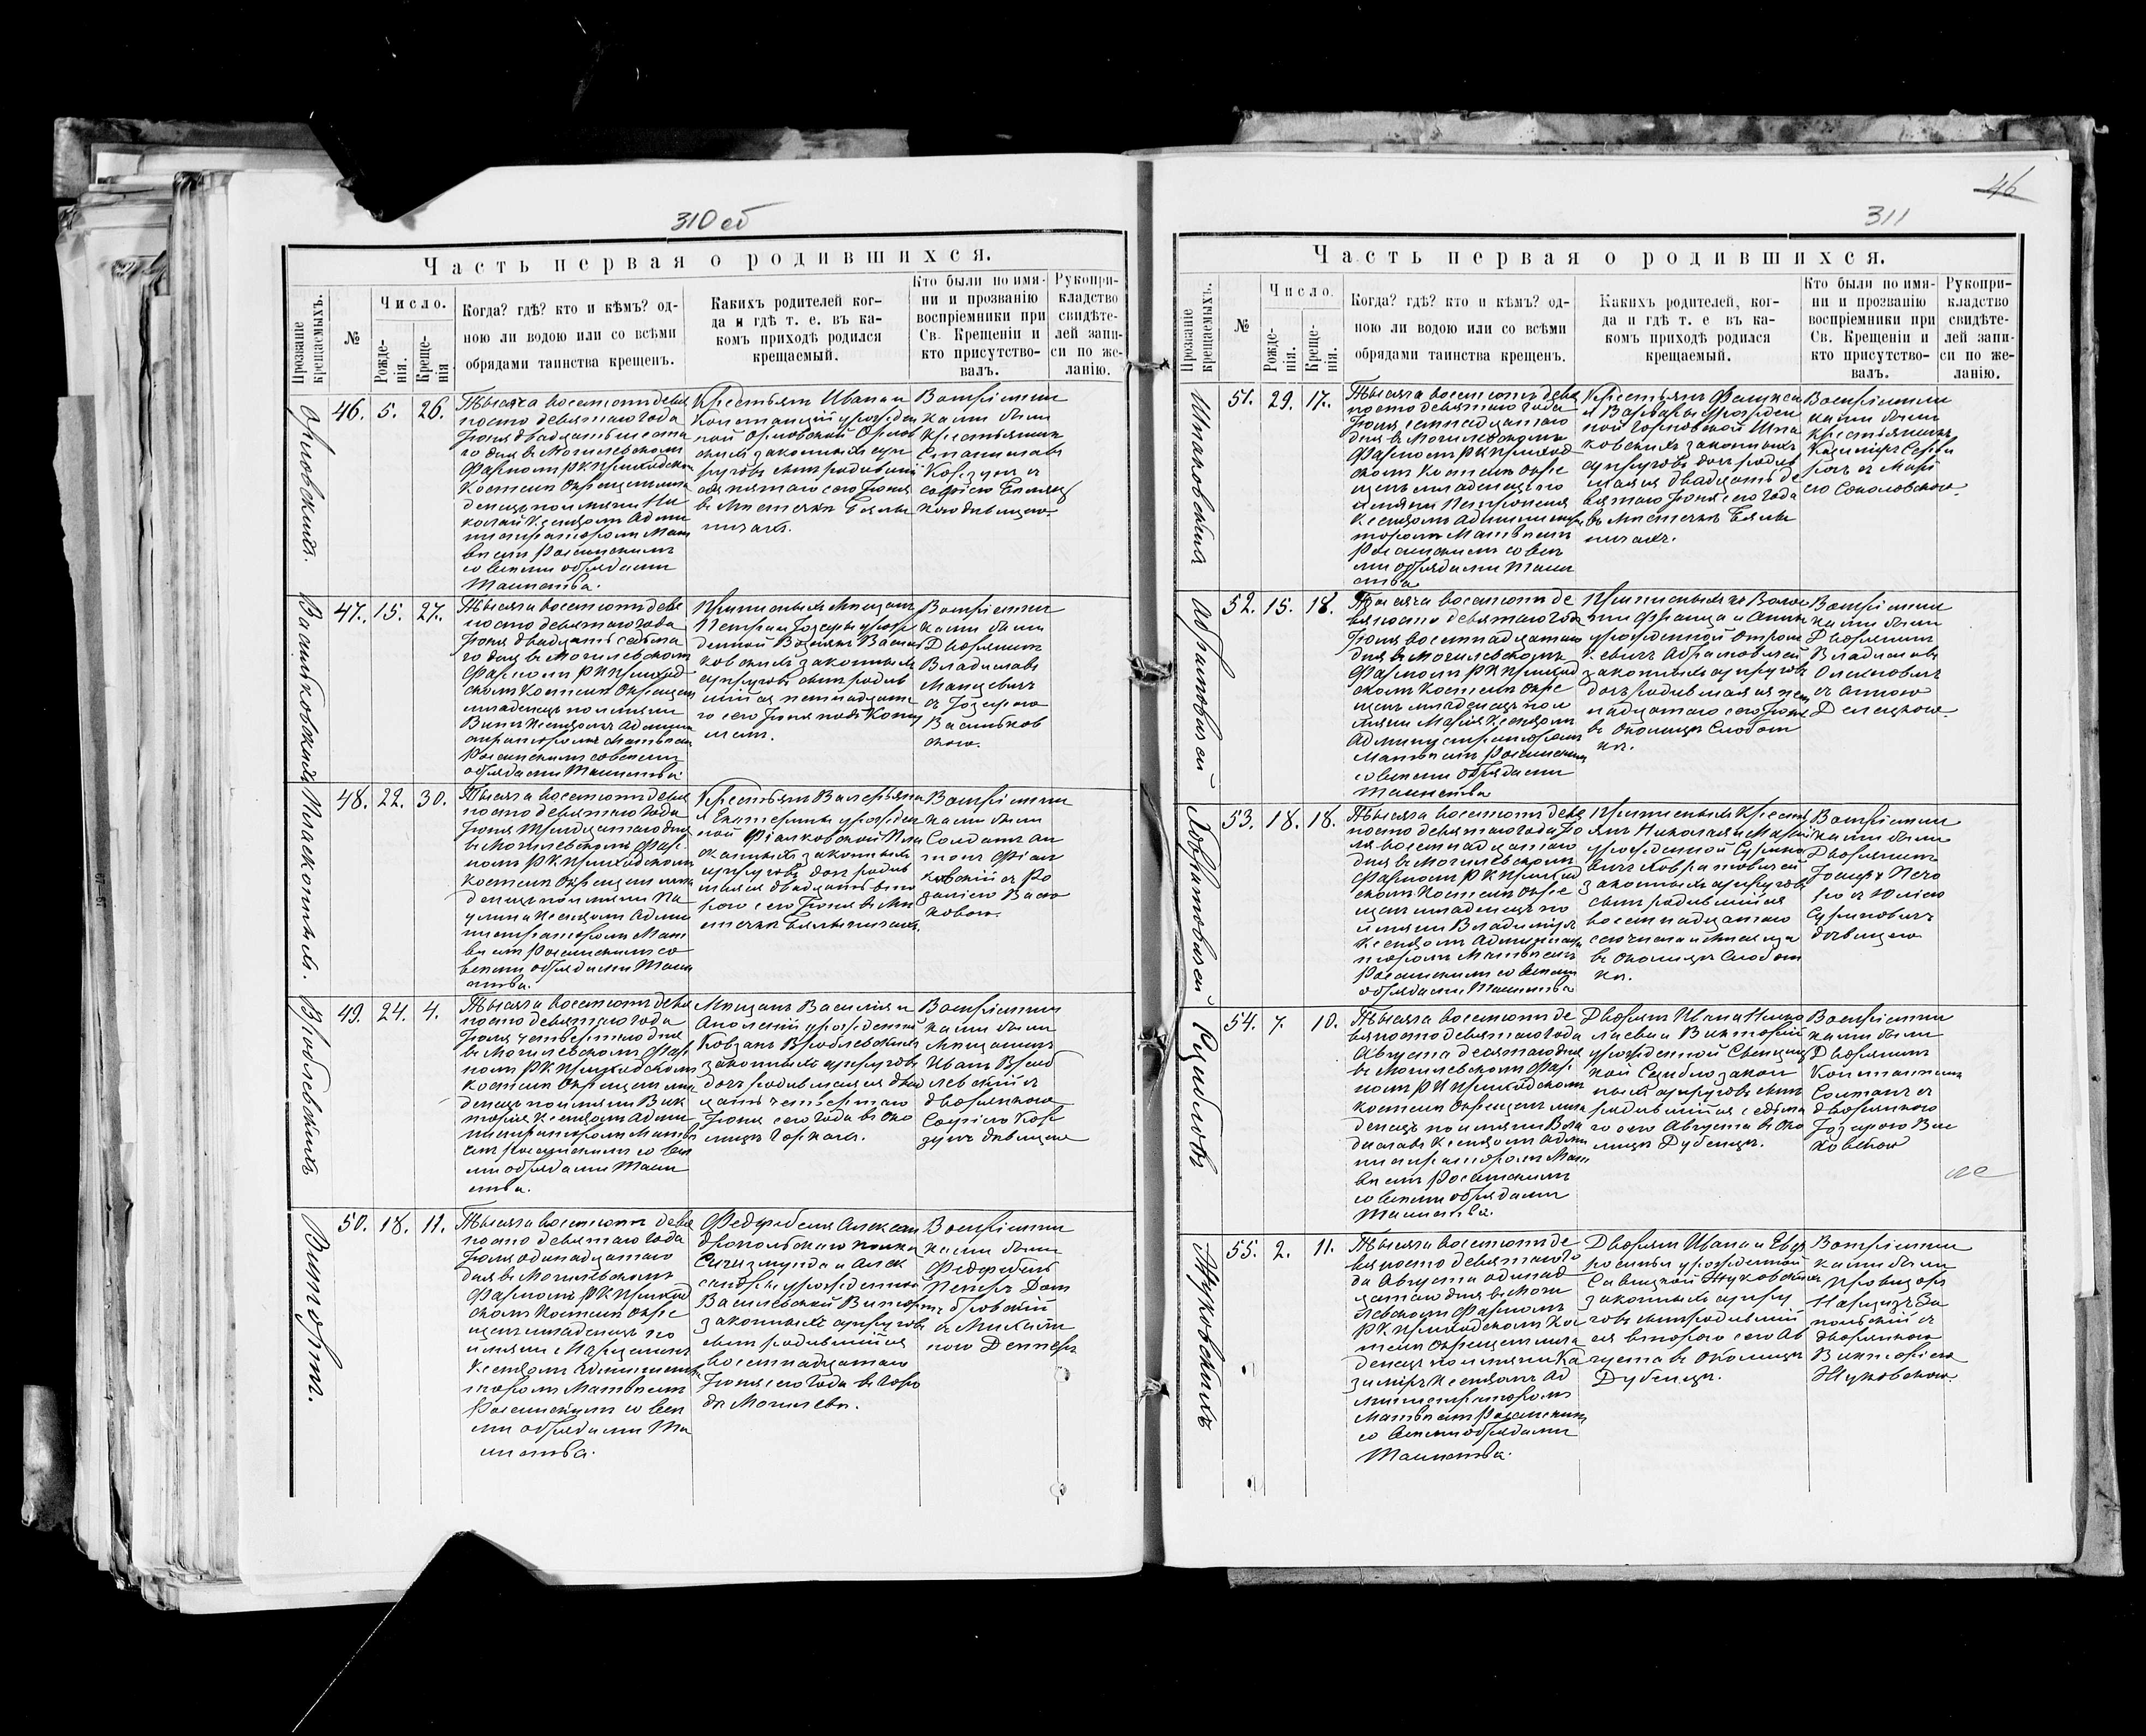 310 об
Часть первая о родившихся.
Прозваніе крещаемыхъ.
№
Число.
Рожде-
нія.
Креще-
нія
Когда? гдѣ? кто и кѣмъ? од-
ною ли водою или со всѣми
обрядами таинства крещенъ.
Какихъ родителей ког-
да и гдѣ т. е. въ ка-
комъ приходѣ родился
крещаемый.
Кто были по имя-
ни и прозванію
воспріемники при
Св. Крещеніи и
кто присутство-
валъ.
Рукопри-
кладство
свидѣте-
лей запи-
си по же-
ланію.
Орловскихъ.
46. 5. 26.
Тысяча восемьсотъ девя
носто девятаго года
Іюня двадцать шеста
го дня въ Могилевскомъ
Фарномъ РК Приходском
Костелѣ Окрещенъ мла
денецъ по имяни Ни
колай Ксендзомъ Адми
нистраторомъ Мат
вѣемъ
со всѣми обрядами
Таинства.
Крестьянъ Ивана и
Констанціи урожден
ной Орловской Орлов
скихъ законныхъ суп
руговъ сынъ родивший
ся пятаго сего Іюня
въ Мѣстечкѣ Бялы
ничахъ.
Воспріемни
ками были
Крестьянинъ
Станиславъ
Корзунъ съ
Софіею
дѣвицею.
Васильковскихъ
47. 15. 27.
Тысяча восемьсотъ девя
носто девятаго года
Іюня двадцать седьма
го дня въ Могилевскомъ
Фарномъ РК Приход
скомъ Костелѣ Окрещен
младенецъ по имяни
Ксендзомъ Админи
страторомъ Матвѣем
со всѣми
обрядами Таинства.
Приписныхъ Мѣщанъ
Петра и Іозефы урож
денной Василь
ковскихъ законныхъ
супруговъ сынъ родив
шійся пятнадцата
го сего Іюня
Воспріемни
ками были
Дворянинъ
Владиславъ
Мацкевичъ
съ Іозефою
Васильков
скою.
Пласконныхъ.
48. 22. 30.
Тысяча восемьсотъ девя
носто девятаго года
Іюня Тридцатаго дня
въ Могилевскомъ Фар
номъ РК Приходскомъ
Костелѣ Окрещенъ мла
денецъ по имяни Па
улина Ксендзомъ Адми
нистраторомъ Мат
вѣемъ со
всѣми обрядами Таин
ства.
Крестьянъ Валерьяна
и Екатерины урожден
ной Фіалковской Пла
сконныхъ законныхъ
супруговъ дочь родив
шаяся двадцать вто
раго сего Іюня въ Мѣ
стечкѣ Бялыничахъ.
Воспріемни
ками были
Солдатъ Ан
тонъ Фіал
ковскій съ Ро
заліею Васю
ковою.
Врублевскихъ
49. 24. 4.
Тысяча восемьсотъ девя
носто девятаго года
Іюля четвертаго дня
въ Могилевскомъ Фар
номъ РК Приходскомъ
Костелѣ Окрещенъ мла
денецъ по имяни Вик
торія Ксендзомъ Адми
нистраторомъ Матвѣ
емъ со всѣ
ми обрядами Таин
ства.
Мѣщанъ Василія и
Аполоніи урожденной
Ковзанъ Врублевскихъ
законныхъ супруговъ
дочь родившаяся два
дцать четвертаго
Іюня сего года въ Око
лицѣ Горкахъ.
Воспріемни
ками были
Мѣщанинъ
Иванъ Вруб
левскій съ
дворянкою
Софіею Кор
зунъ дѣвицею
Витортъ.
50. 18. 11.
Тысяча восемьсотъ девя
носто девятаго года
Іюля одинадцатаго
дня въ Могилевскомъ
Фарномъ РК Приход
скомъ Костелѣ Окре
щенъ младенецъ по
имяни Марціанъ
Ксендзомъ Администра
торомъ Матвѣемъ
со всѣ
ми обрядами Та
инства.
Фельдфебеля Алексан
дропольскаго полка
Сигизмунда и Алек
сандры урожденной
Василевской Виторт
законныхъ супруговъ
сынъ родившійся
восемнадцатаго
Іюня сего года въ горо
дѣ Могилевѣ.
Воспріемни
ками были
Фельдфебель
Петръ Дом
бровскій
съ Михали
ною
46
311
Часть первая о родившихся.
Прозваніе крещаемыхъ.
№
Число.
Рожде-
нія.
Креще-
нія.
Когда? гдѣ? кто и кѣмъ? од-
ною ли водою или со всѣми
обрядами таинства крещенъ.
Какихъ родителей, ког-
да и гдѣ т. е въ ка-
комъ приходѣ родился
крещаемый.
Кто были по имя-
ни и прозванію
воспріемники при
Св. Крещеніи и
кто присутство-
валъ.
Рукопри-
кладство
свидѣте-
лей запи-
си по же-
ланію.
Шпаковскихъ
51. 29. 17.
Тысяча восемьсотъ девя
носто девятаго года
Іюля семнадцатаго
дня въ Могилевскомъ
Фарномъ РК Приход
скомъ Костелѣ Окре
щенъ младенецъ по
имяни Петронеля
Ксендзомъ Администра
торомъ Матвѣемъ
со всѣ
ми обрядами Таин
ства
Крестьянъ
и Варвары урожден
ной Горловской Шпа
ковскихъ законныхъ
супруговъ дочь родив
шаяся двадцать де
вятаго Іюня сего года
въ Мѣстечкѣ Бялы
ничахъ.
Воспріемни
ками были
Крестьянинъ
Казимиръ
съ Марі
ею Соколовскою.
Абрамовичей
52. 15. 18.
Тысяча восемьсотъ де
вяносто девятаго года
Іюля восемнадцатаго
дня въ Могилевскомъ
Фарномъ РК Приход
скомъ Костелѣ Окре
щенъ младенецъ по и
мяни Марія Ксендзомъ
Администраторомъ
Матвѣемъ
со всѣми обрядами
Таинства
Приписныхъ къ Волос
ти Франца и Анны
урожденной
Абрамовичей
законныхъ супруговъ
дочь родившаяся пят
надцатаго сего Іюля
въ Околицѣ Слобот
кѣ.
Воспріемни
ками были
Дворянинъ
Владиславъ
Олехновичъ
съ Анною
Делецкою.
Ховратовичей
53. 18. 18.
Тысяча восемьсотъ девя
носто девятаго года Ію
ля восемнадцатаго
дня въ Могилевскомъ
Фарномъ РК Приход
скомъ Костелѣ Окре
щенъ младенецъ по
имяни Владимиръ
Ксендзомъ Администра
торомъ Матвѣемъ
со всѣми
обрядами Таинства
Приписныхъ Кресть
янъ Николая и Маріи
урожденной Сурино
вичъ Ховратовичей
законныхъ супруговъ
сынъ родившійся
восемнадцатаго
сего числа и мѣсяца
въ Околицѣ Слобот
кѣ.
Воспріемни
ками были
Дворянинъ
Іосифъ
съ Юліею
Суриновичъ
дѣвицею
54. 7. 10.
Тысяча восемьсотъ де
вяносто девятаго года
Августа десятаго дня
въ Могилевскомъ Фар
номъ РК Приходскомъ
Костелѣ Окрещенъ мла
денецъ по имяни Вла
диславъ Ксендзомъ Адми
нистраторомъ Мат
вѣемъ
со всѣми обрядами
Таинства.
Дворянъ Ивана Нико
лаева и Викторіи
урожденной Свенциц
кой закон
ныхъ супруговъ сынъ
родившійся седьма
го сего Августа въ Око
лицѣ Дубенцѣ.
Воспріемни
ками были
Дворянинъ
Константинъ
Солтанъ съ
дворянкою
Іозефою
Жуковскихъ
55. 2. 11.
Тысяча восемьсотъ де
вяносто девятаго го
да Августа одинад
цатаго дня въ Моги
левскомъ Фарномъ
РК Приходскомъ Ко
стелѣ Окрещенъ мла
денецъ по имяни Ка
зимиръ Ксендзомъ Ад
министраторомъ
Матвѣемъ
со всѣми обрядами
Таинства.
Дворянъ Ивана и Евф
росиніи урожденной
Савицкой Жуковскихъ
законныхъ супру
говъ сынъ родивший
ся втораго сего Ав
густа въ Околицѣ
Дубенцѣ.
Воспріемни
ками были
Провизоръ
Нарцизъ За
польскій съ
дворянкою
Викторіею
Жуковскою.